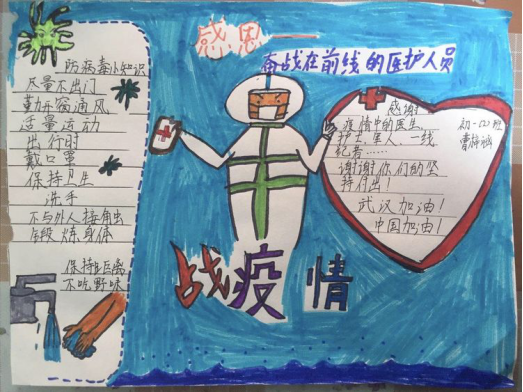 感恩——
奋战在前线的医护人员
防病毒小知识
尽量不出门
勤开窗通风
适量运动
出行时
戴口罩
保持卫生
洗手
不与外人接触
锻炼身体
保持距离
不吃野味
感谢
疫情中的医生、
护士、军人、一线
记者……
谢谢你们的坚
持付出!
武汉加油!
中国加油!
初一(2)班
战疫情